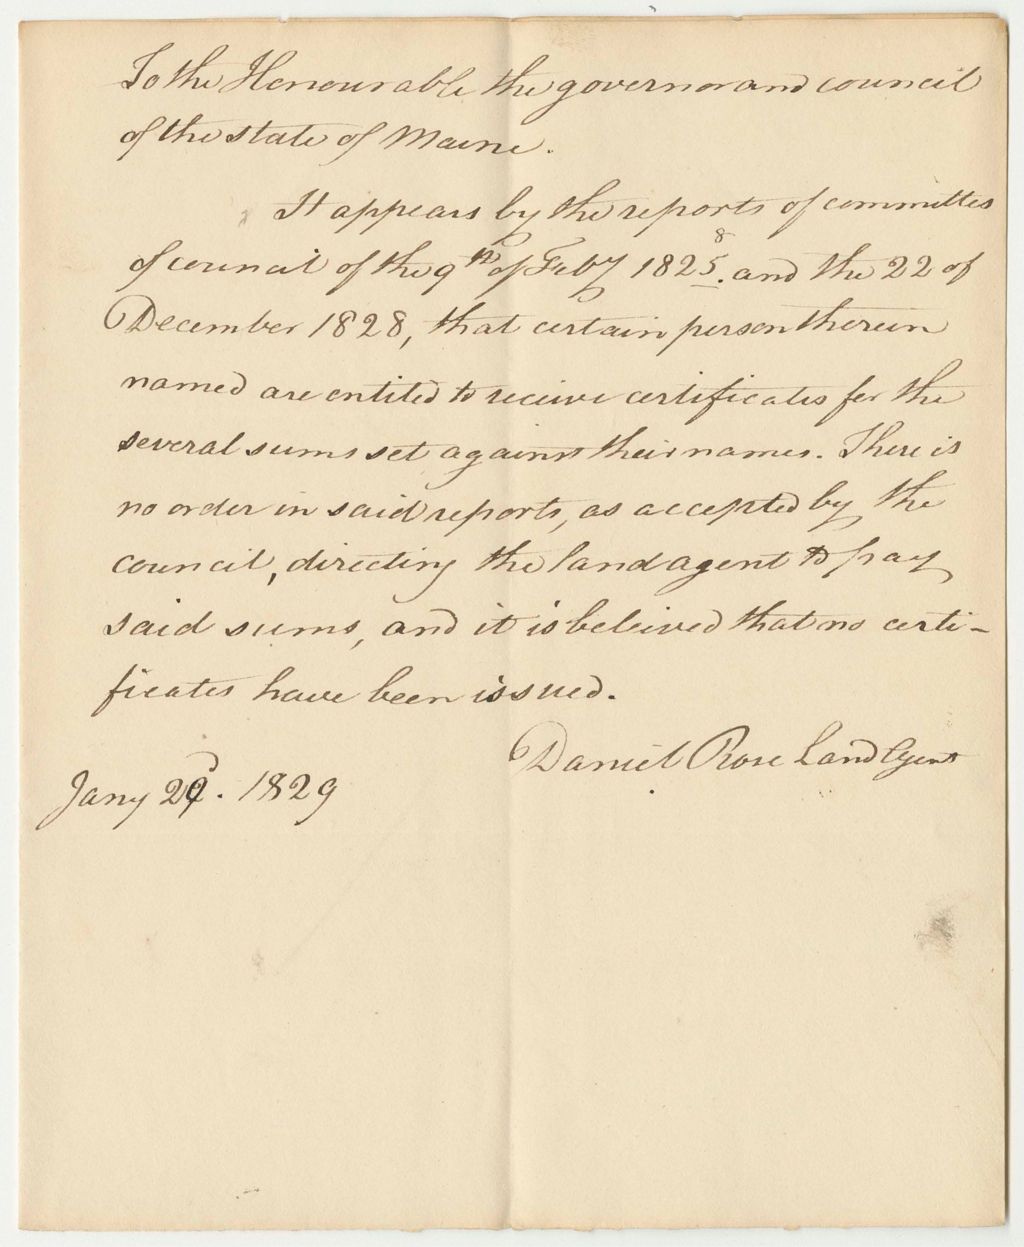 To the Honourable the governor and council
of the state of Maine.
It appears by the reports of committes
of council of the 9th of Feby 1825.8 and the 22 of
December 1828, that certain person therein
named are entitled to receive certificates for the
several sums set against their names. There is
no order in said reports, as accepted by the
council, directing the land agent to pay
said sums, and it is beleived that no certi-
ficates have been issued.
Daniel Rose Land Agent
Jany 29. 1829